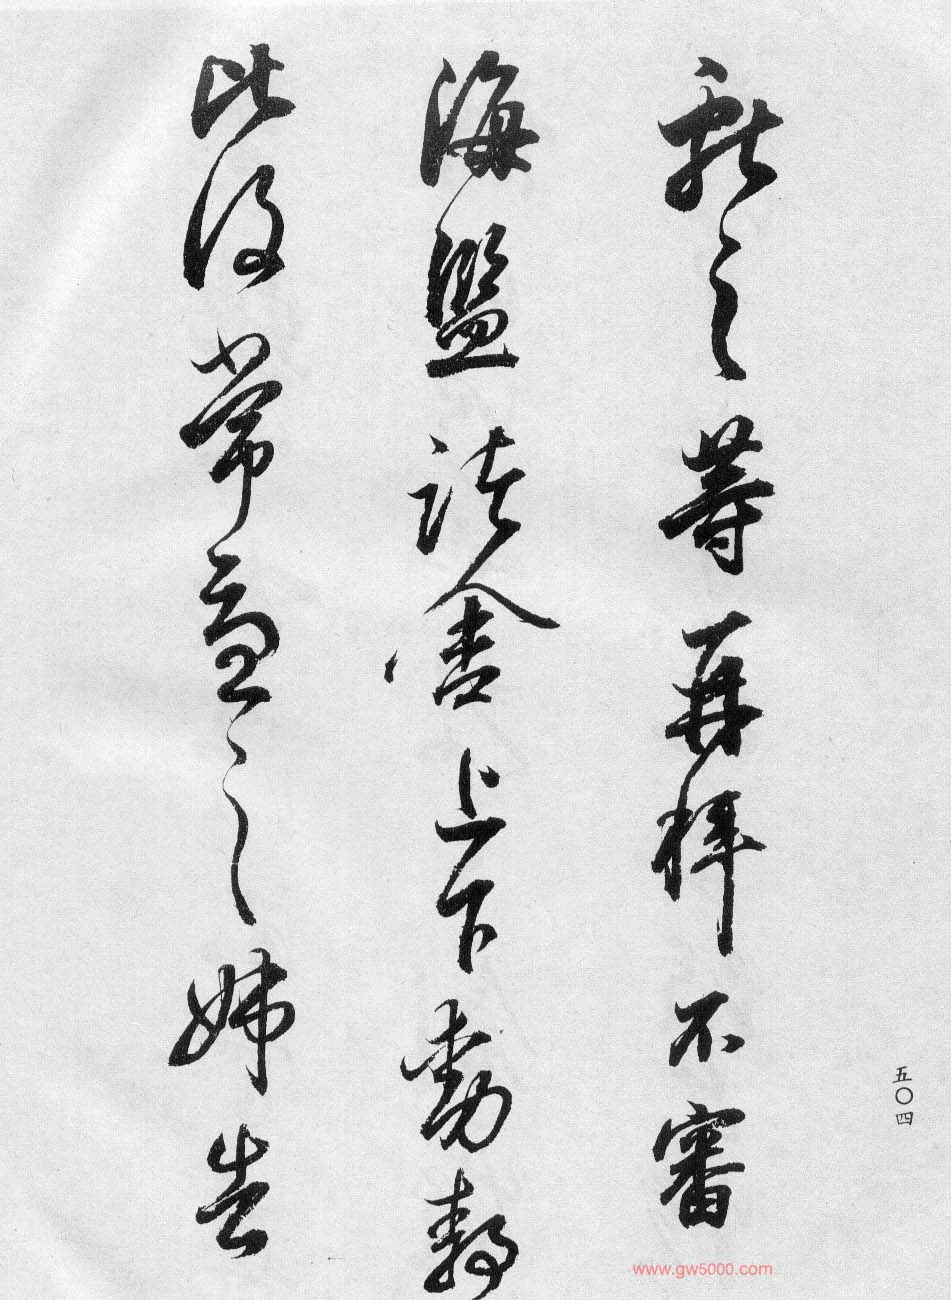 獻之等再拜不審
海鹽諸舍上下動靜
比復常憂之姊告
五〇四
www.gw5000.com